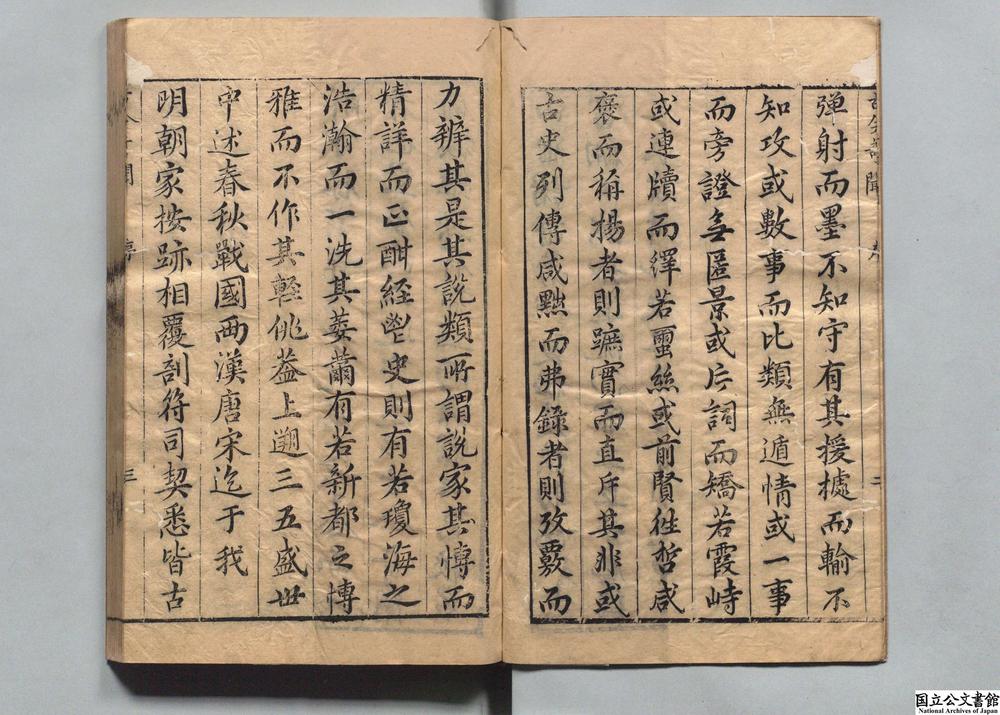 弹射而墨不知守有其援㨿而輸不
知攻或數事而比類無遁情或一事
而旁證無匿景或片詞而矯若霞峙
或連牘而繹若蠒絲或前賢徃哲咸
褒而稱揚者則蹠實而直斥其非或
古史列傳咸㸃而弗錄者則攷覈而
力辨其是其說類所謂說家其愽而
精詳而正酣經 史則有若瓊海之
浩瀚而一洗其萎薾有若新都之愽
雅而不作其輕佻葢上遡三五盛世
中述春秋戰國兩漢唐宋迄于我
明朝家按跡相覆剖符司契悉皆古
三
国立公文書館
National Archives of Japan